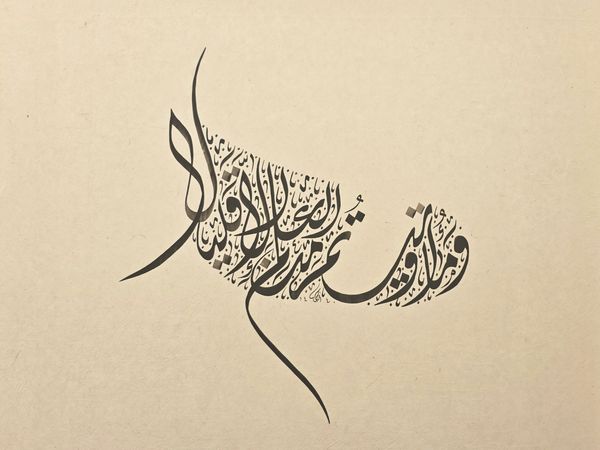 وَمَا أُوتِيتُم مِّنَ الْعِلْمِ إِلَّا قَلِيلًا